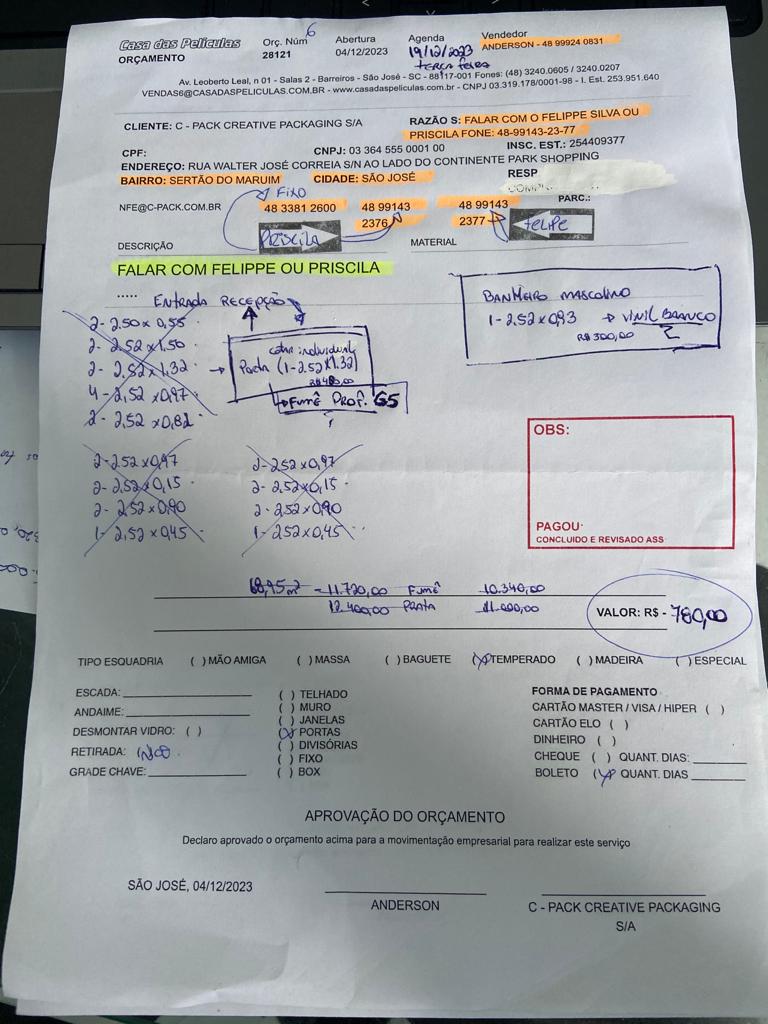 6
Casa das Películas
ORÇAMENTO
Orç. Núm
28121
Abertura
04/12/2023
Agenda
19/12/2023
TERÇA FEIRA
Vendedor
ANDERSON - 48 99924 0831
Av. Leoberto Leal, n 01 - Salas 2 - Barreiros - São José - SC - 88117-001 Fones: (48) 3240.0605 / 3240.0207
VENDAS6@CASADASPELICULAS.COM.BR - www.casadaspeliculas.com.br - CNPJ 03.319.178/0001-98 - I. Est. 253.951.640
CLIENTE: C - PACK CREATIVE PACKAGING S/A
RAZÃO S: FALAR COM O FELIPPE SILVA OU
PRISCILA FONE: 48-99143-23-77
CPF:
CNPJ: 03 364 555 0001 00
INSC. EST.: 254409377
ENDEREÇO: RUA WALTER JOSÉ CORREIA S/N AO LADO DO CONTINENTE PARK SHOPPING
BAIRRO: SERTÃO DO MARUIM
CIDADE: SÃO JOSÉ
RESP
FIXO
NFE@C-PACK.COM.BR
48 3381 2600
48 99143
2376
48 99143
2377
PARC.:
PRISCILA
FELIPE
DESCRIÇÃO
MATERIAL
FALAR COM FELIPPE OU PRISCILA
.....
ENTRADA RECEPÇÃO
2- 2.50 x 0,55
2- 2.52 x 1,50
2- 2.52 x 1,32
4- 2,52 x 0,97
2- 2,52 x 0,82
individual
Porta (1-2.52 x 1.32)
R$ 480,00
FUMÊ PROF. G5
BANHEIRO MASCULINO
1- 2.52 x 0,93 → VINIL BRANCO
R$ 300,00
2- 2.52 x 0,97
2- 2.52 x 0,15
2- 2.52 x 0,90
1- 2,52 x 0,45
2- 2.52 x 0,97
2- 2.52 x 0,15
2- 2.52 x 0,90
1- 2.52 x 0,45
OBS:
PAGOU
CONCLUIDO E REVISADO ASS
68,95m² = 11.720,00 FUMÊ 10.340,00
12.400,00 PRATA 11.000,00
VALOR: R$ - 780,00
TIPO ESQUADRIA ( ) MÃO AMIGA ( ) MASSA ( ) BAGUETE (X) TEMPERADO ( ) MADEIRA ( ) ESPECIAL
ESCADA:
ANDAIME:
DESMONTAR VIDRO: ( )
RETIRADA: (NÃO
GRADE CHAVE:
( ) TELHADO
( ) MURO
( ) JANELAS
(X) PORTAS
( ) DIVISÓRIAS
( ) FIXO
( ) BOX
FORMA DE PAGAMENTO
CARTÃO MASTER / VISA / HIPER ( )
CARTÃO ELO ( )
DINHEIRO ( )
CHEQUE ( ) QUANT. DIAS:
BOLETO (X) QUANT. DIAS
APROVAÇÃO DO ORÇAMENTO
Declaro aprovado o orçamento acima para a movimentação empresarial para realizar este serviço
SÃO JOSÉ, 04/12/2023
ANDERSON
C - PACK CREATIVE PACKAGING
S/A